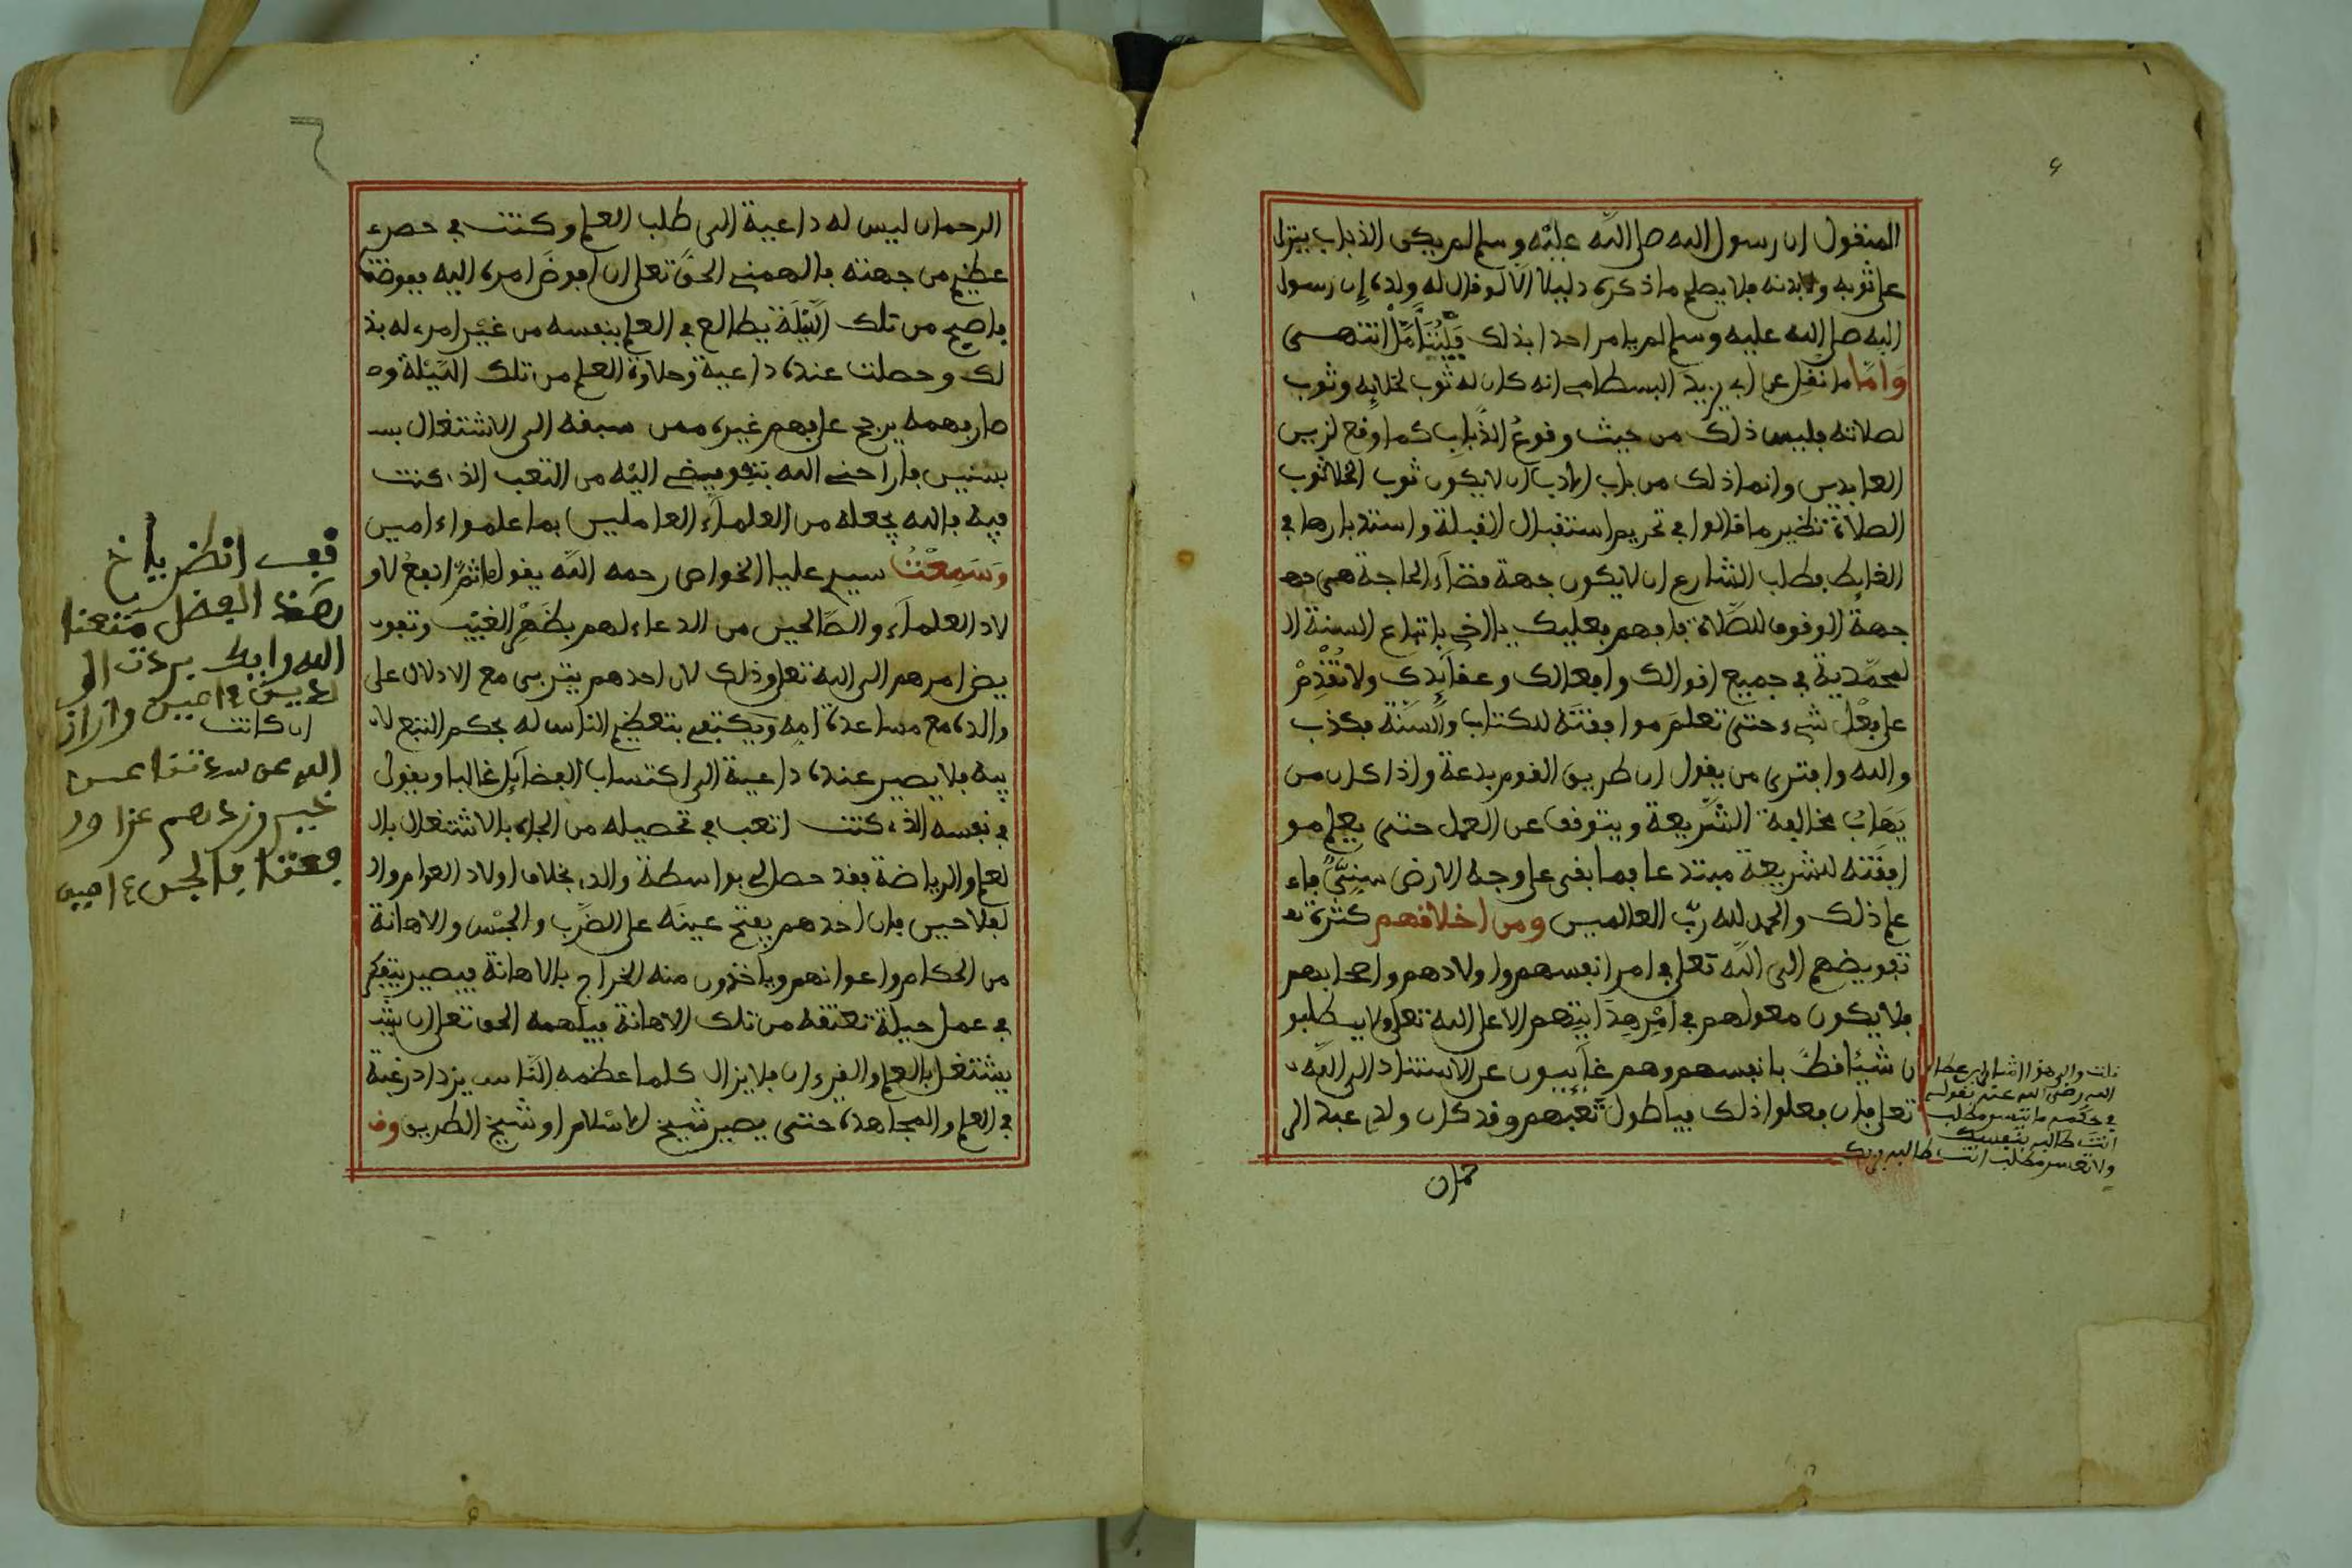 المنقول ان رسول الله صلى الله عليه وسلم لم يكن الذباب ينزل
على ثوبه ولا بدنه فلا يصلح ما ذكره دليلا الا لو قال له ولده إن رسول
الله صلى الله عليه وسلم لم يامر احدا بذلك فَلْيُتَأَمَّلْ انتهى
وَامَّا ما نقل عن ابي يزيد البسطامي انه كان له ثوب لخلائه وثوب
لصلاته فليس ذلك من حيث وقوعُ الذُّباب كما وقع لزين
العابدين وانما ذلك من باب الادب ان لا يكون ثوب الخلا ثوب
الصلاة نظير ما قالوا في تحريم استقبال القبلة واستدبارها في
الغايط فطلب الشارع ان لا يكون جهة قضآء الحاجة هي جه
جهةُ الوقوف للصَّلاة فافهم فعليك يا اخي باتباع السنة ال
لمحمّدية في جميع اقوالك وافعالك وعقآئدك ولا تُقْدِمْ
على فِعْل شيء حتى تعلمَ موافقتَه للكتاب والسّنّة فكذب
والله وافترى من يقول ان طريق القوم بدعة واذا كان من
يَهَابُ مخالفة الشّريعة ويتوقف عن العمل حتى يعلم مو
افقتَه للشريعة مبتدعا فما بقى على وجه الارض سنِّيٌّ فاع
علم ذلك والحمد لله ربّ العالمين ومن اخلاقهم كثرة تف
تفويضهم الى الله تعلى في امر انفسهم واولادهم واصحابهم
فلا يكون معولهم في أمْرِ هِدايتهم الا على الله تعلى ولا يطلبو
ن شيئا قطُّ بانفسهم وهم غآئبون عن الاستناد الى الله
تعلى فان فعلوا ذلك فيا طول تَعَبهم وقد كان ولدي عبد الر
قلت والى هذا اشار ابن عطاء
الله رضي الله عنه بقوله
في حكمه ما تيسر مطلب
انت طالبه بنفسك
ولا تعسر مطلب انت طالبه بربك
حمان
الرحمان ليس له داعية الى طلب العلم وكنت في حصر
عظيم من جهته فالهمني الحقّ تعلى ان افوضَ امره اليه ففوضته
فاصبح من تلك الّيْلَة يطالع في العلم بنفسه من غيْر امري له بذ
لك وحصلت عنده داعية وحلاوة العلم من تلك الّيْلة وص
صار فهمه يرجح على فهم غيره ممن سبقه الى الاشتغال بس
بسنين فاراحني الله بتفويضي اليْه من التعب الذي كنت
فيه فالله يجعله من العلمآء العاملين بما علموا ءامين
وَسَمِعْتُ سيدي عليا الخواص رحمه الله يقول ما ثَمَّ انفعُ لاو
لاد العلمآء والصّالحين من الدعاء لهم بظَهْرِ الغيْب وتفو
يض امرهم الى الله تعلى وذلك لان احدهم يتربى مع الادلال على
والده مع مساعدة امه ويكتفي بتعظيم الناس له بحكم التبع لاب
بيه فلا يصير عنده داعية الى اكتساب الفضآئل غالبا ويقول
في نفسه الذي كنت اتعب في تحصيله من الجاه بالاشتغال بال
لعلم والرياضة فقد حصل لي بواسطة والدي بخلاف اولاد العوام وال
لفلاحين فان احدهم يفتح عينَه على الضَّرب والحبْس والاهانة
من الحكام واعوانهم وياخذون منه الخراج بالاهانة فيصير يتفكر
في عمل حيلة تعتقه من تلك الاهانة فيلهمه الحق تعلى ان
يشتغل بالعلم والقرءان فلا يزال كلما عظمه النّاس يزداد رغبة
في العلم والمجاهدة حتى يصير شيخ الاسلام او شيخ الطريق وق
قف انظر يا اخ
هذا الفضل متعنا
الله واياك
ءامين
ان كانت
ءامين